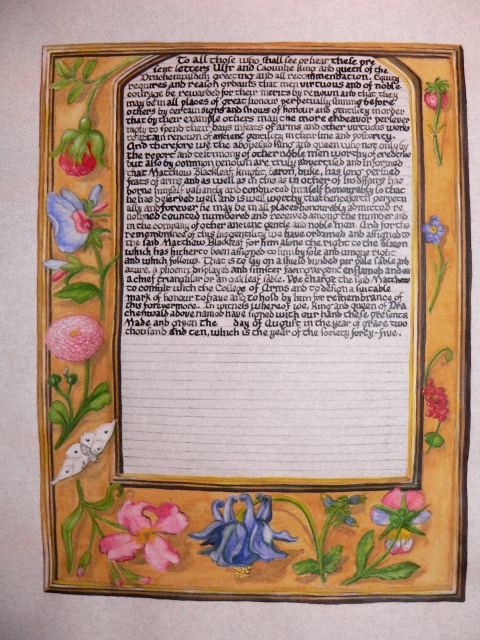 To all those who shall see or hear these pre
sent letters Ulfr and Caoimhe King and queen of the
Drachenwaldum greeting and all recommendation. Equity
requires and reason ordains that men virtuous and of noble
courage be rewarded for their merits by renown and that they
may be in all places of great honour perpetually shining before
others by certain signs and shows of honour and gentility in order
that by their example others may the more endeavor persever
ingly to spend their days in feats of arms and other virtuous works
to attain renown of ancient gentility in their line and posterity.
And therefore we the abovesaid king and queen who not only by
the report and testimony of other noble men worthy of credence
but also by common renown are truly advertised and informed
that Matthew Blackleaf, knight, baron, duke, has long pursued
feats of arms and as well as in this as in other of his affairs has
borne himself valiantly and conducted himself honourably so that
he has deserved well and is well worthy that henceforth perpetu
ally and forever he may be in all places honourably admitted re
nowned counted numbered and received among the number and
in the company of other ancient gentle and noble men. And for the
remembrance of this his gentility we have ordained and assigned to
the said Matthew Blackleaf for him alone the right to the blazon
which has hitherto been assigned to him by sole and unique right
and which follows. That is to say on a shield divided per pale sable and
azure, a phoenix displayed and sinister facing argent enflamed and on
a chief triangular or an oak leaf sable. We charge the said Matthew
to consult with the College of Arms and to design a suitable
mark of honour to have and to hold by him for remembrance of
this forevermore. In witness whereof we, king and queen of Dra
chenwald above named have signed with our hand these presents
Made and given the day of August in the year of grace two
thousand and ten, which is the year of the society forty-five.